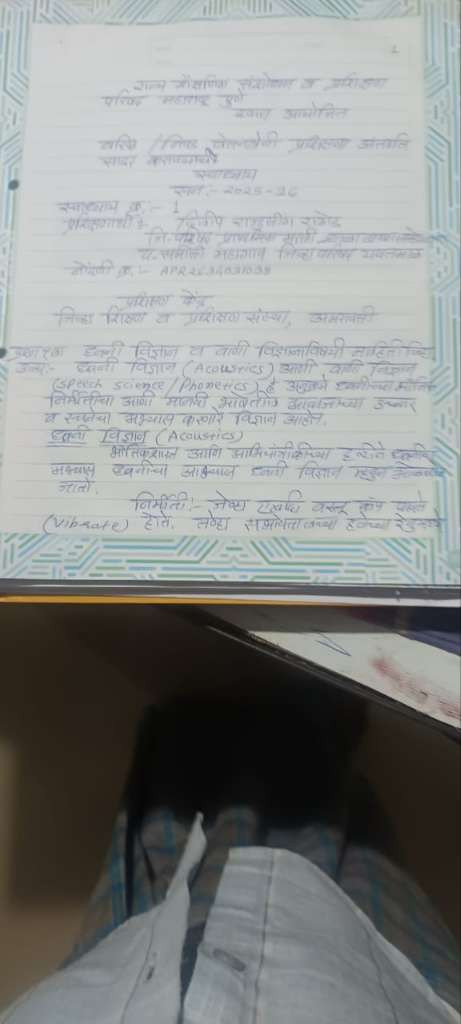 1
राज्य शैक्षणिक संशोधन व प्रशिक्षण
परिषद महाराष्ट्र पुणे
द्वारा आयोजित
वरिष्ठ / निवड वेतनश्रेणी प्रशिक्षणा अंतर्गत
सादर करावयाचा
स्वाध्याय
सन :- 2025-26
स्वाध्याय क्र. :- 1
प्रशिक्षणार्थी :- दिलीप राठोड
जि. परिषद प्राथमिक शाळा
पं. समिती महागाव जिल्हा यवतमाळ
नोंदणी क्र. :-
प्रशिक्षण केंद्र
जिल्हा शिक्षण व प्रशिक्षण संस्था, अमरावती
ध्वनी विज्ञान व वाणी विज्ञानाविषयी माहिती लिहा
उत्तर :- ध्वनी विज्ञान (Acoustics) आणी वाणी विज्ञान
(Speech science / Phonetics) हे अनुक्रमे ध्वनीच्या
निर्मितीचा आणी मानवी भाषेतील आवाजाच्या उच्चार
व अभ्यास करणारे विज्ञान आहेत.
ध्वनी विज्ञान (Acoustics)
भौतिकशास्त्र आणि अभियांत्रिकीच्या
अभ्यास ध्वनीचा अभ्यास ध्वनी विज्ञान म्हणून ओळखला
जातो.
निर्मिती :- जेव्हा एखादी वस्तू कंप पावते
(Vibrate) होते, तेव्हा सभोवतालच्या हवेच्या रेणूंमध्ये